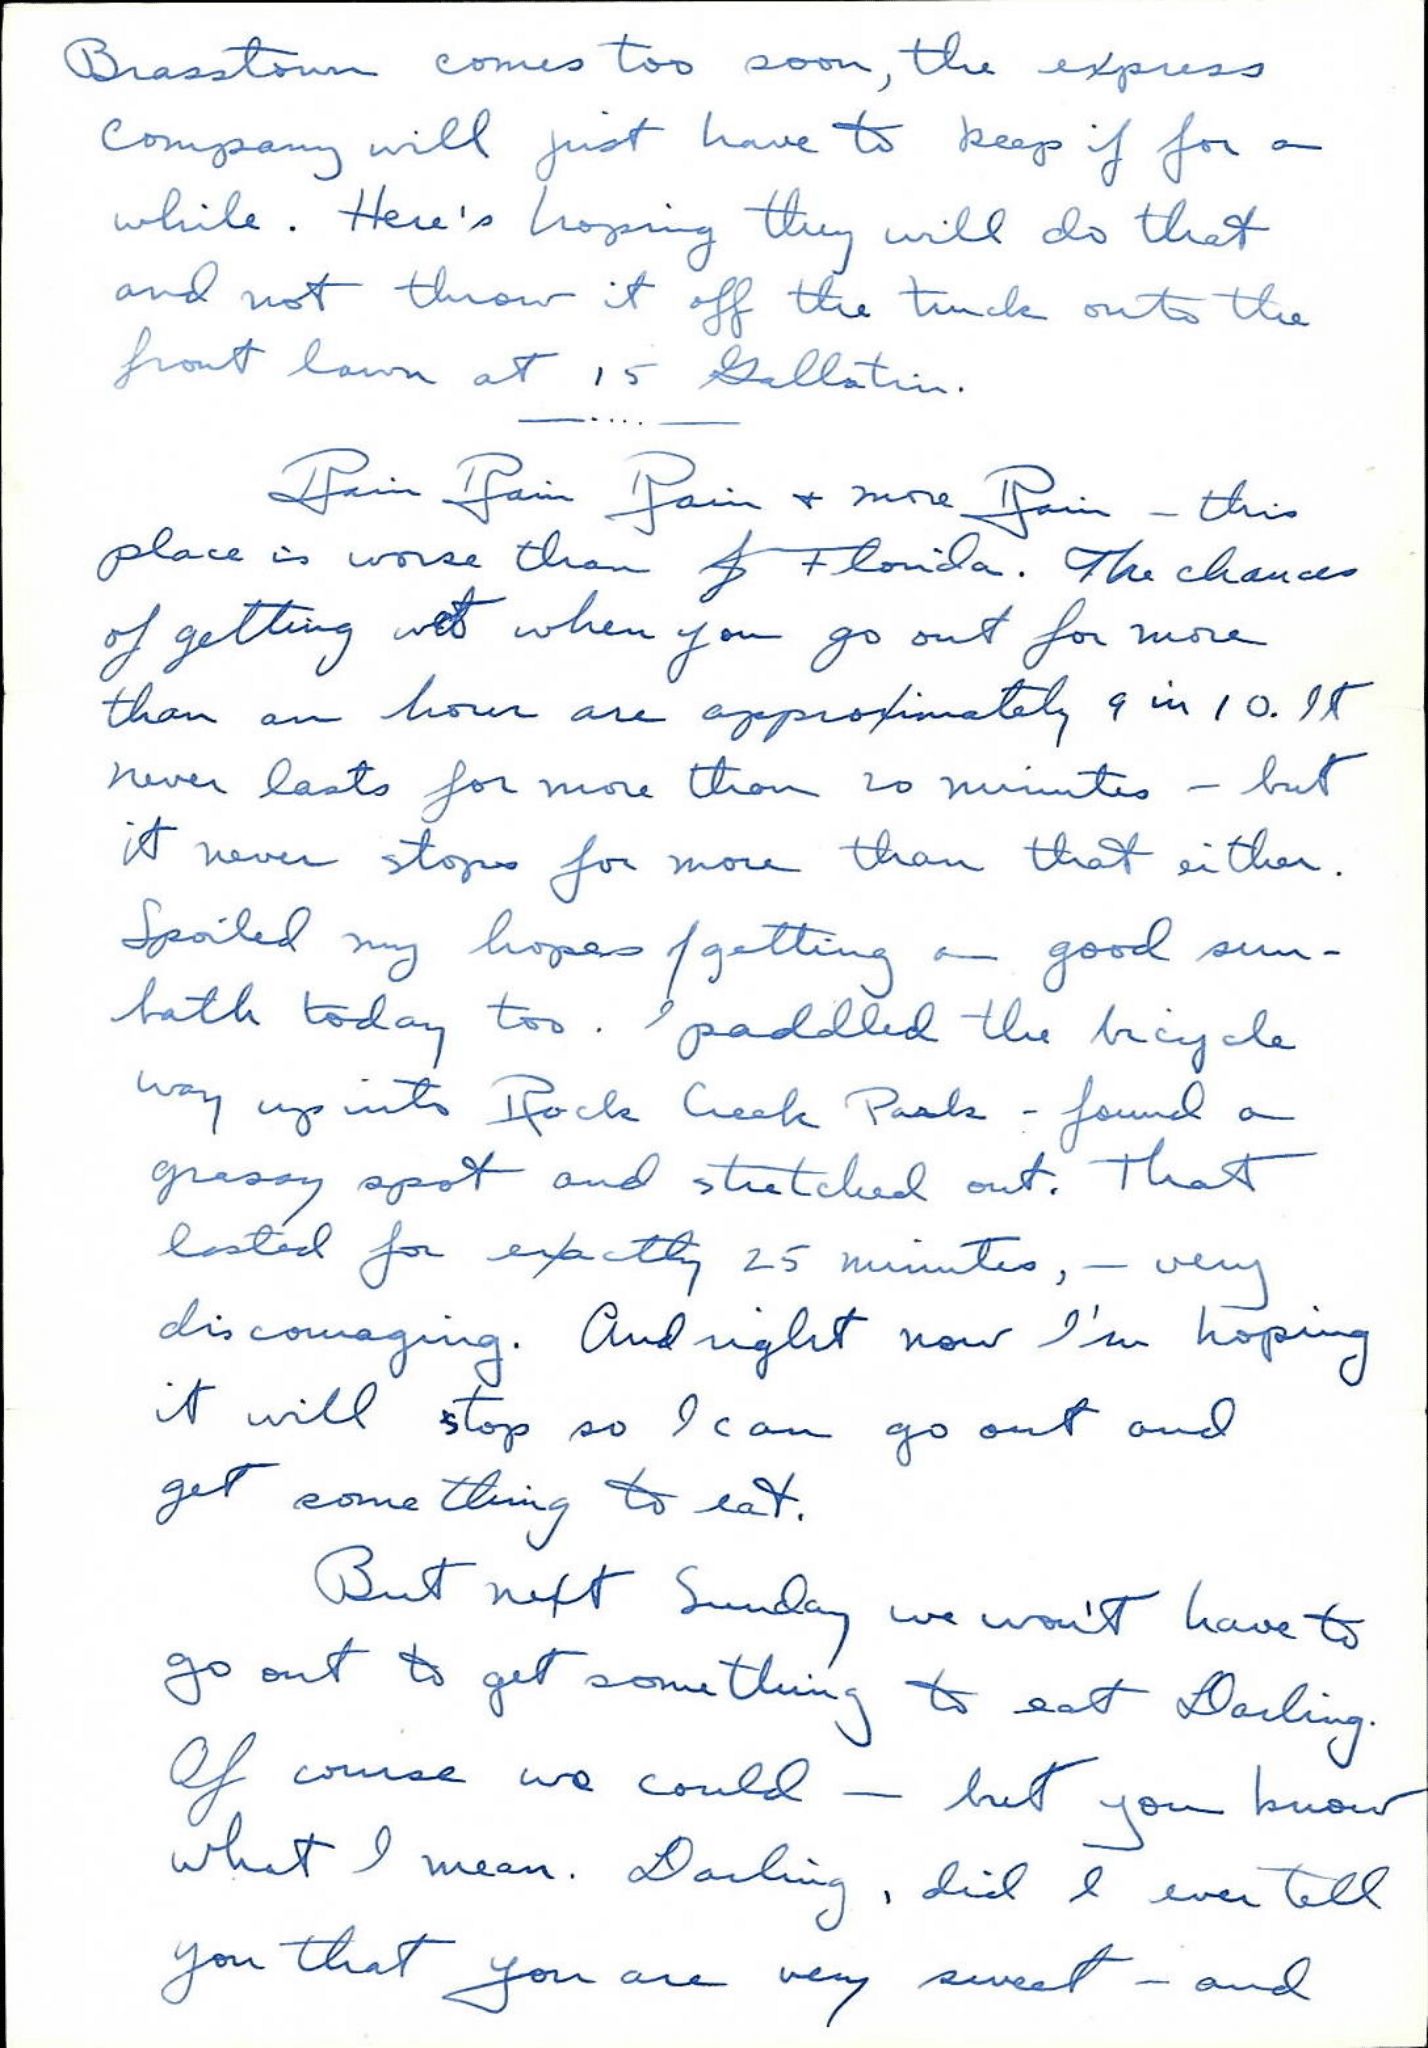 Brasstown comes too soon, the express
company will just have to keep if for a
while. Here's hoping they will do that
and not throw it off the truck onto the
front lawn at 15 Gallatin.
Rain Rain Rain + more Rain - this
place is worse than Florida. The chances
of getting wet when you go out for more
than an hour are approximately 9 in 10. It
never lasts for more than 20 minutes - but
it never stops for more than that either.
Spoiled my hopes of getting a good sun-
bath today too. I paddled the bicycle
way up into Rock Creek Park - found a
grassy spot and stretched out. That
lasted for exactly 25 minutes, - very
discouraging. And right now I'm hoping
it will stop so I can go out and
get something to eat.
But next Sunday we won't have to
go out to get something to eat Darling.
Of course we could - but you know
what I mean. Darling, did I ever tell
you that you are very sweet - and